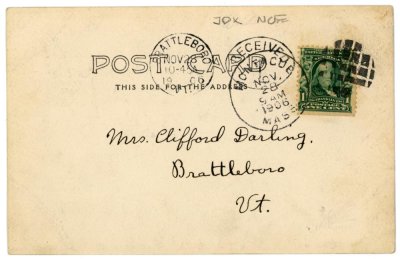 JDK NOE
BRATTLEBORO
NOV 28
POST CARD
THIS SIDE FOR THE ADDRESS
RECEIVED
MONTAGUE
NOV.
28
9 AM
1906
MASS
1 1
Mrs. Clifford Darling,
Brattleboro
Vt.